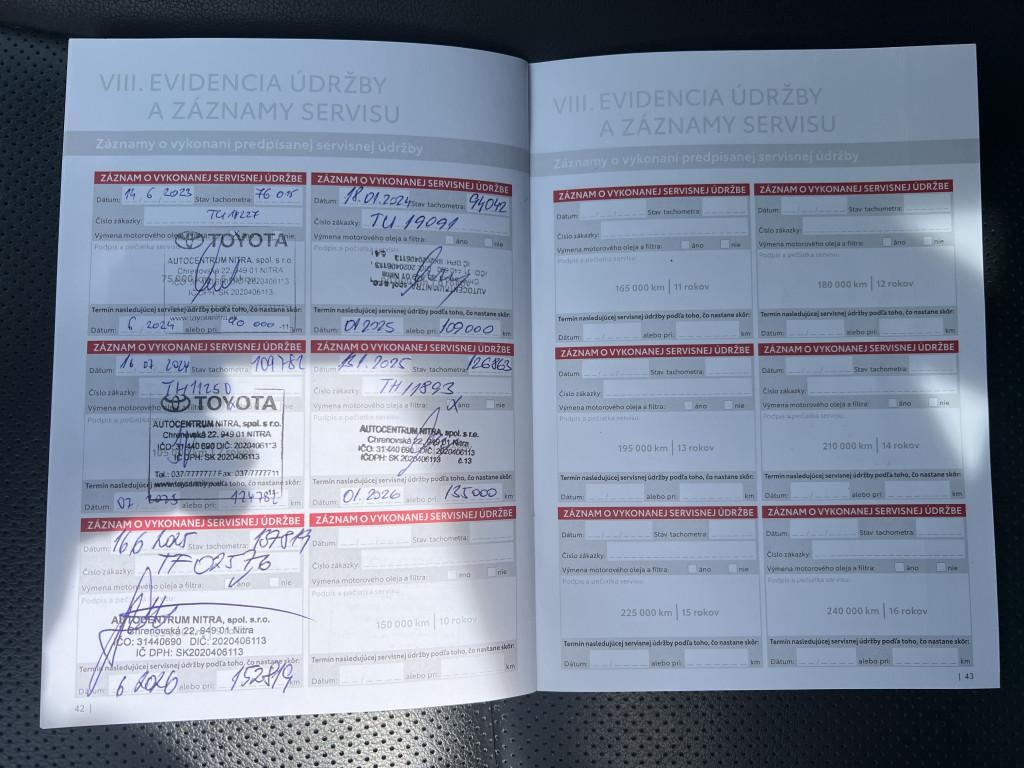 VIII. EVIDENCIA ÚDRŽBY
A ZÁZNAMY SERVISU
Záznamy o vykonaní predpísanej servisnej údržby
ZÁZNAM O VYKONANEJ SERVISNEJ ÚDRŽBE
Dátum: 14 6 2023 Stav tachometra: 76 015
Číslo zákazky: TU
Výmena motorového oleja a filtra:
Podpis a pečiatka servisu:
TOYOTA
AUTOCENTRUM NITRA, spol. s r.o.
Chrenovská 22, 949 01 NITRA
IČO: 31 440 690 DIČ: 2020406113
IČDPH: SK 2020406113
Termín nasledujúcej servisnej údržby podľa toho, čo nastane skôr:
Dátum: 6 2024 alebo pri: 90 000
ZÁZNAM O VYKONANEJ SERVISNEJ ÚDRŽBE
Dátum: 18.01.2024 Stav tachometra: 94042
Číslo zákazky: TU 19091
Výmena motorového oleja a filtra: áno nie
Podpis a pečiatka servisu:
AUTOCENTRUM NITRA, spol. s r.o.
IČ DPH: SK 2020406113
č.4
Termín nasledujúcej servisnej údržby podľa toho, čo nastane skôr:
Dátum: 01 2025 alebo pri: 109000 km
ZÁZNAM O VYKONANEJ SERVISNEJ ÚDRŽBE
Dátum: 16 07 2024 Stav tachometra: 109782
Číslo zákazky: TH 11250
Výmena motorového oleja a filtra: nie
Podpis a pečiatka servisu:
TOYOTA
AUTOCENTRUM NITRA, spol. s r.o.
Chrenovská 22, 949 01 NITRA
IČO: 31 440 690 DIČ: 2020406113
IČDPH: SK 2020406113
Tel.: 037/7777777 Fax: 037/7777711
Termín nasledujúcej servisnej údržby podľa toho, čo nastane skôr:
Dátum: 07 2025 alebo pri: 124782 km
ZÁZNAM O VYKONANEJ SERVISNEJ ÚDRŽBE
Dátum: 1.2025 Stav tachometra: 126863
Číslo zákazky: TH 11893
Výmena motorového oleja a filtra: x áno nie
Podpis a pečiatka servisu:
AUTOCENTRUM NITRA, spol. s r.o.
Chrenovská 22, 949 01 Nitra
IČO: 31 440 690 DIČ: 2020406113
IČDPH: SK 2020406113 č.13
Termín nasledujúcej servisnej údržby podľa toho, čo nastane skôr:
Dátum: 01.2026 alebo pri: 135000 km
ZÁZNAM O VYKONANEJ SERVISNEJ ÚDRŽBE
Dátum: 16.6 2025 Stav tachometra: 137819
Číslo zákazky: TF 02576
Výmena motorového oleja a filtra: áno nie
Podpis a pečiatka servisu:
AUTOCENTRUM NITRA, spol. s.r.o.
Chrenovská 22, 949 01 Nitra
IČO: 31440690 DIČ: 2020406113
IČ DPH: SK2020406113
Termín nasledujúcej servisnej údržby podľa toho, čo nastane skôr:
Dátum: 6 2026 alebo pri: 152819 km
ZÁZNAM O VYKONANEJ SERVISNEJ ÚDRŽBE
Dátum: Stav tachometra:
Číslo zákazky:
Výmena motorového oleja a filtra: áno nie
Podpis a pečiatka servisu:
150 000 km | 10 rokov
Termín nasledujúcej servisnej údržby podľa toho, čo nastane skôr:
Dátum: alebo pri: km
42 |
VIII. EVIDENCIA ÚDRŽBY
A ZÁZNAMY SERVISU
Záznamy o vykonaní predpísanej servisnej údržby
ZÁZNAM O VYKONANEJ SERVISNEJ ÚDRŽBE
Dátum: Stav tachometra:
Číslo zákazky:
Výmena motorového oleja a filtra: áno nie
Podpis a pečiatka servisu:
165 000 km | 11 rokov
Termín nasledujúcej servisnej údržby podľa toho, čo nastane skôr:
Dátum: alebo pri: km
ZÁZNAM O VYKONANEJ SERVISNEJ ÚDRŽBE
Dátum: Stav tachometra:
Číslo zákazky:
Výmena motorového oleja a filtra: áno nie
Podpis a pečiatka servisu:
180 000 km | 12 rokov
Termín nasledujúcej servisnej údržby podľa toho, čo nastane skôr:
Dátum: alebo pri: km
ZÁZNAM O VYKONANEJ SERVISNEJ ÚDRŽBE
Dátum: Stav tachometra:
Číslo zákazky:
Výmena motorového oleja a filtra: áno nie
Podpis a pečiatka servisu:
195 000 km | 13 rokov
Termín nasledujúcej servisnej údržby podľa toho, čo nastane skôr:
Dátum: alebo pri: km
ZÁZNAM O VYKONANEJ SERVISNEJ ÚDRŽBE
Dátum: Stav tachometra:
Číslo zákazky:
Výmena motorového oleja a filtra: áno nie
Podpis a pečiatka servisu:
210 000 km | 14 rokov
Termín nasledujúcej servisnej údržby podľa toho, čo nastane skôr:
Dátum: alebo pri: km
ZÁZNAM O VYKONANEJ SERVISNEJ ÚDRŽBE
Dátum: Stav tachometra:
Číslo zákazky:
Výmena motorového oleja a filtra: áno nie
Podpis a pečiatka servisu:
225 000 km | 15 rokov
Termín nasledujúcej servisnej údržby podľa toho, čo nastane skôr:
Dátum: alebo pri: km
ZÁZNAM O VYKONANEJ SERVISNEJ ÚDRŽBE
Dátum: Stav tachometra:
Číslo zákazky:
Výmena motorového oleja a filtra: áno nie
Podpis a pečiatka servisu:
240 000 km | 16 rokov
Termín nasledujúcej servisnej údržby podľa toho, čo nastane skôr:
Dátum: alebo pri: km
| 43